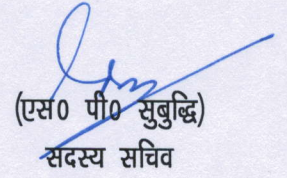 (एस0 पी0 सुबुद्धि)
सदस्य सचिव